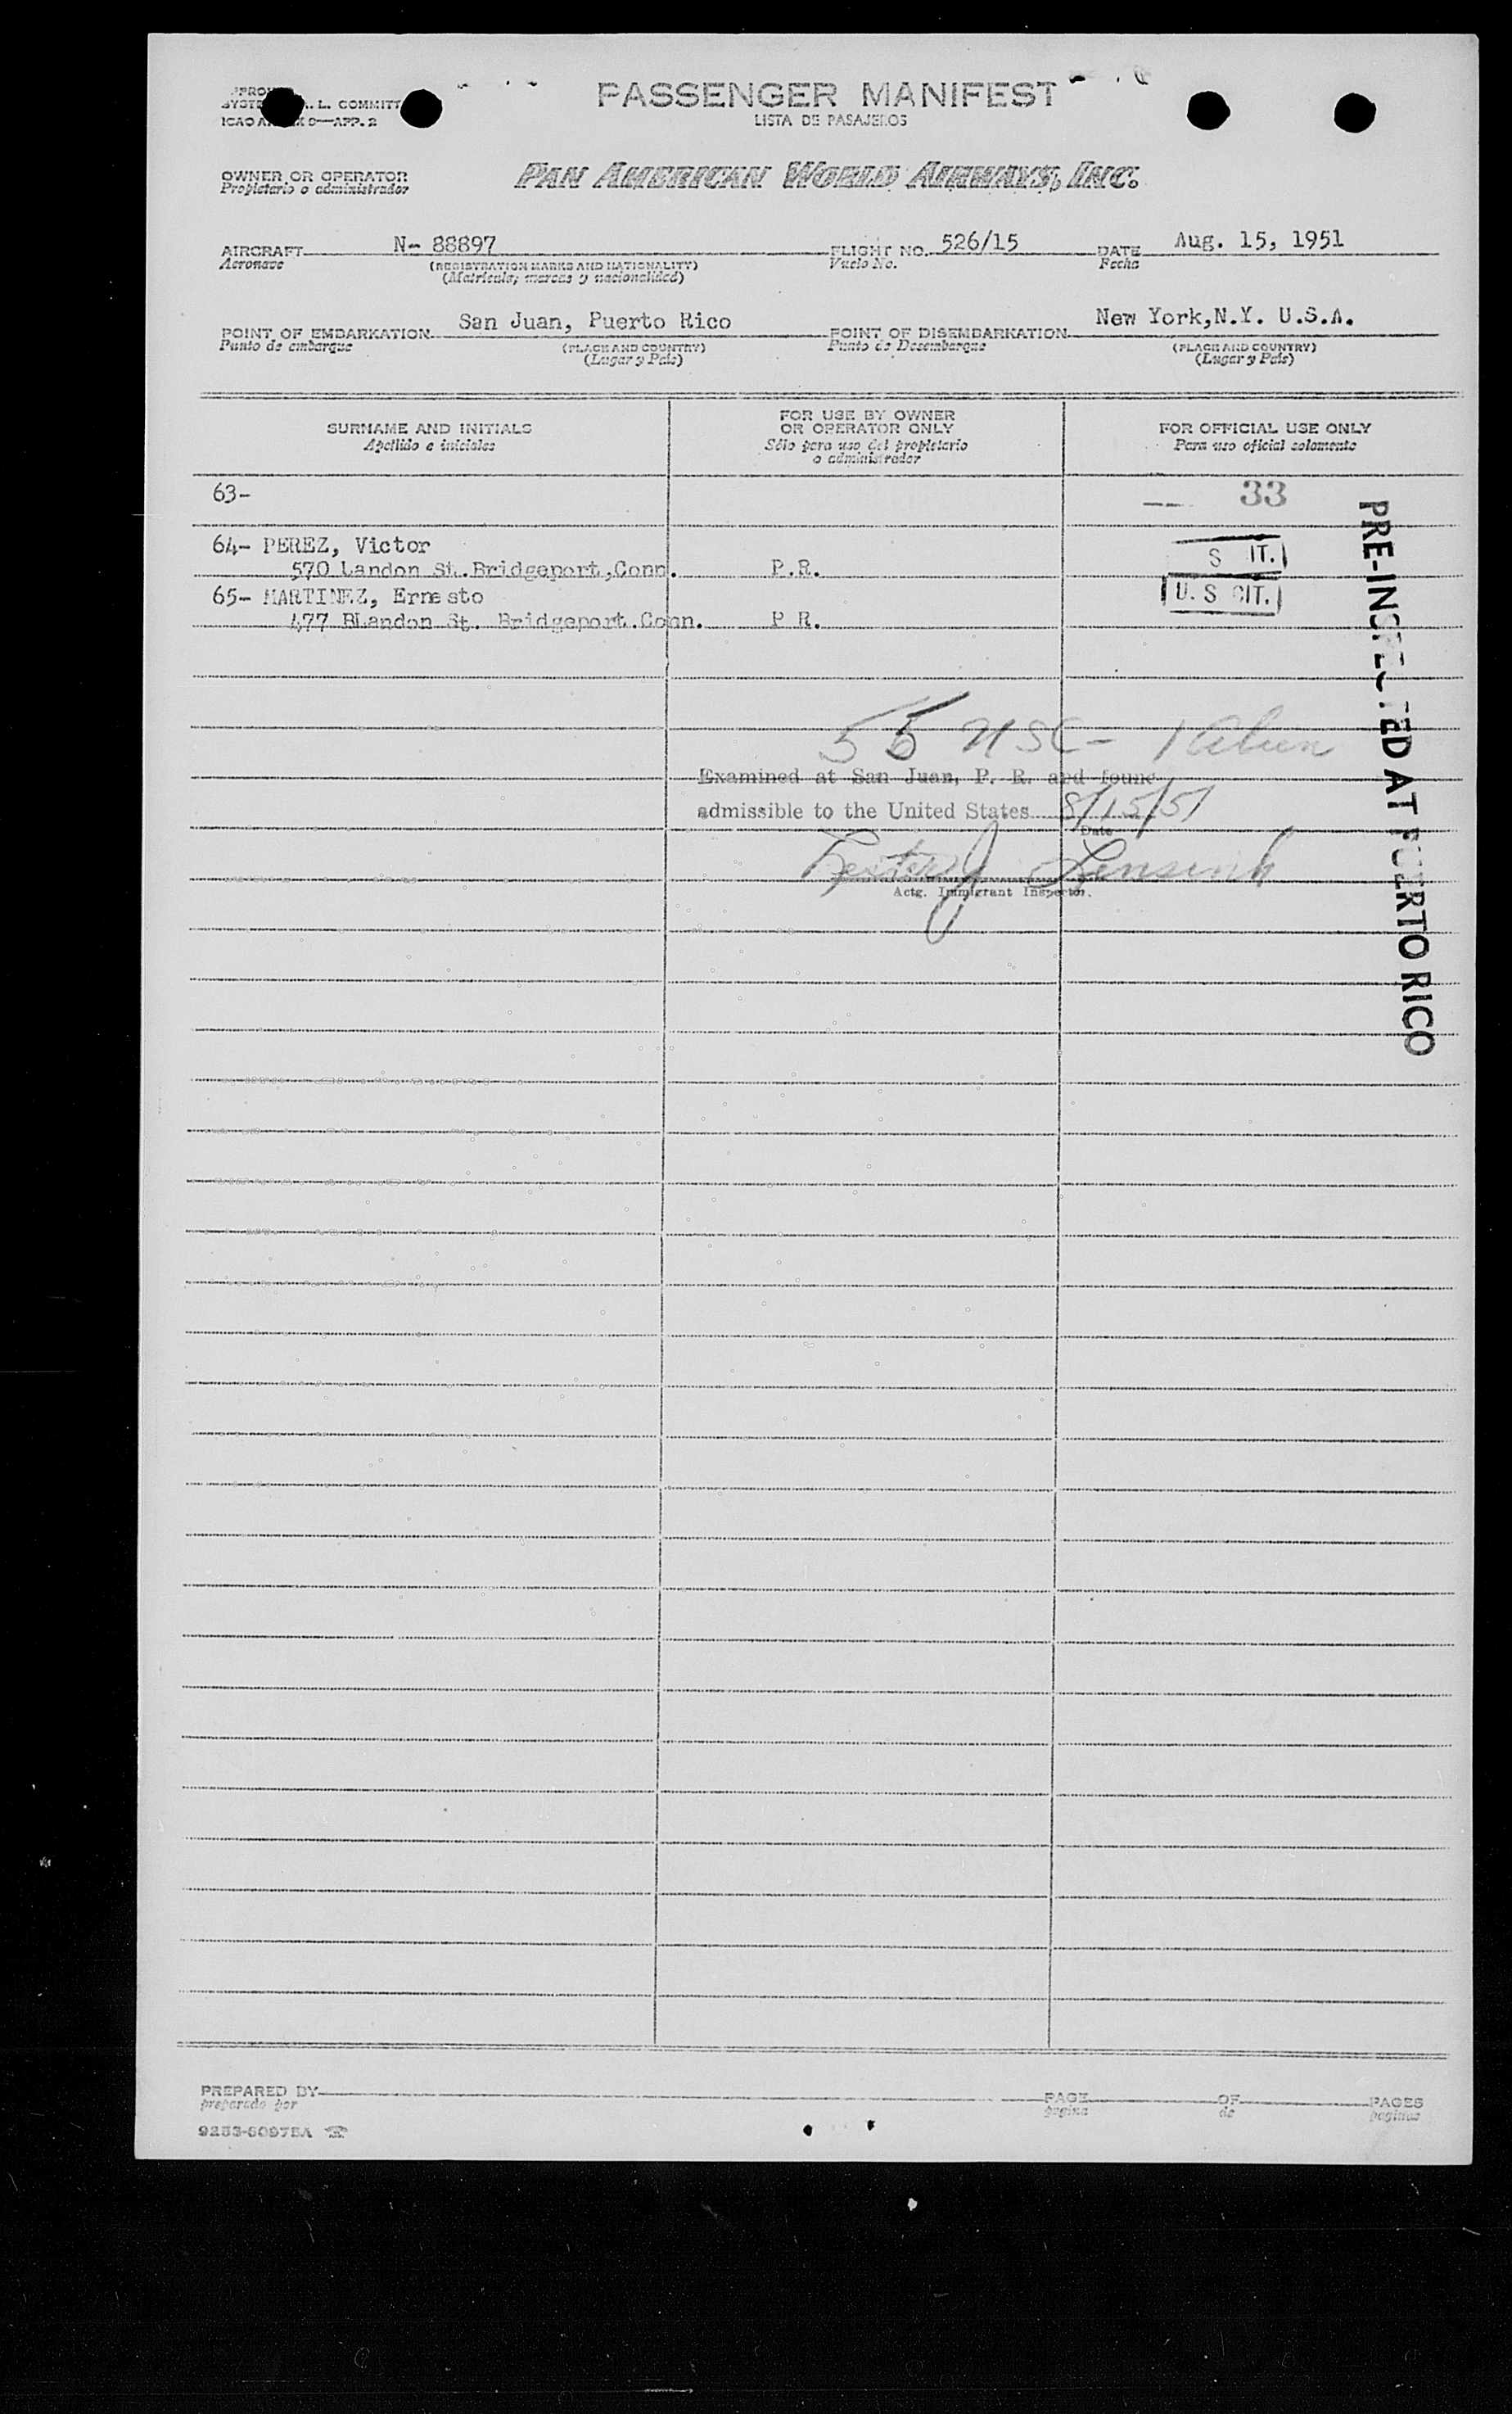 L. COMMITT
PASSENGER MANIFEST
LISTA DE PASAJEROS
OWNER OR OPERATOR
Propietario o administrador
PAN AMERICAN WORLD AIRWAYS, INC.
AIRCRAFT N- 88897 FLIGHT NO. 526/15 DATE Aug. 15, 1951
Aeronave (REGISTRATION MARKS AND NATIONALITY) Vuelo No. Fecha
(Matrícula; marcas y nacionalidad)
POINT OF EMBARKATION San Juan, Puerto Rico POINT OF DISEMBARKATION New York,N.Y. U.S.A.
Punto de embarque (PLACE AND COUNTRY) Punto de Desembarque (PLACE AND COUNTRY)
(Lugar y País) (Lugar y País)
SURNAME AND INITIALS
Apellido e iniciales
FOR USE BY OWNER
OR OPERATOR ONLY
Sólo para uso del propietario
o administrador
FOR OFFICIAL USE ONLY
Para uso oficial solamente
63- 33
64- PEREZ, Victor
570 Landon St.Bridgeport,Conn. P.R. S IT.
65- MARTINEZ, Ernesto U. S CIT.
477 BLandon St. Bridgeport.Conn. P R.
PRE-INSPECTED AT PUERTO RICO
55 USC - 1 Alien
Examined at San Juan, P. R. and found
admissible to the United States 8/15/51
Date
Actg. Immigrant Inspector.
PREPARED BY PAGE OF PAGES
preparado por pagina de paginas